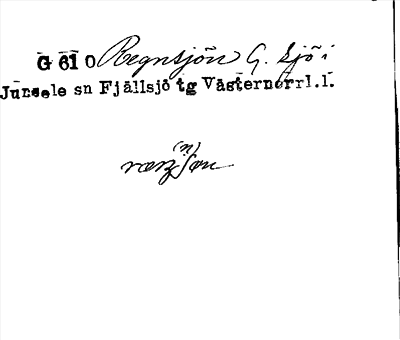 G 61 O Regnsjön G. sjö i
Junsele sn Fjällsjö tg Västernorrl.l.
(n)